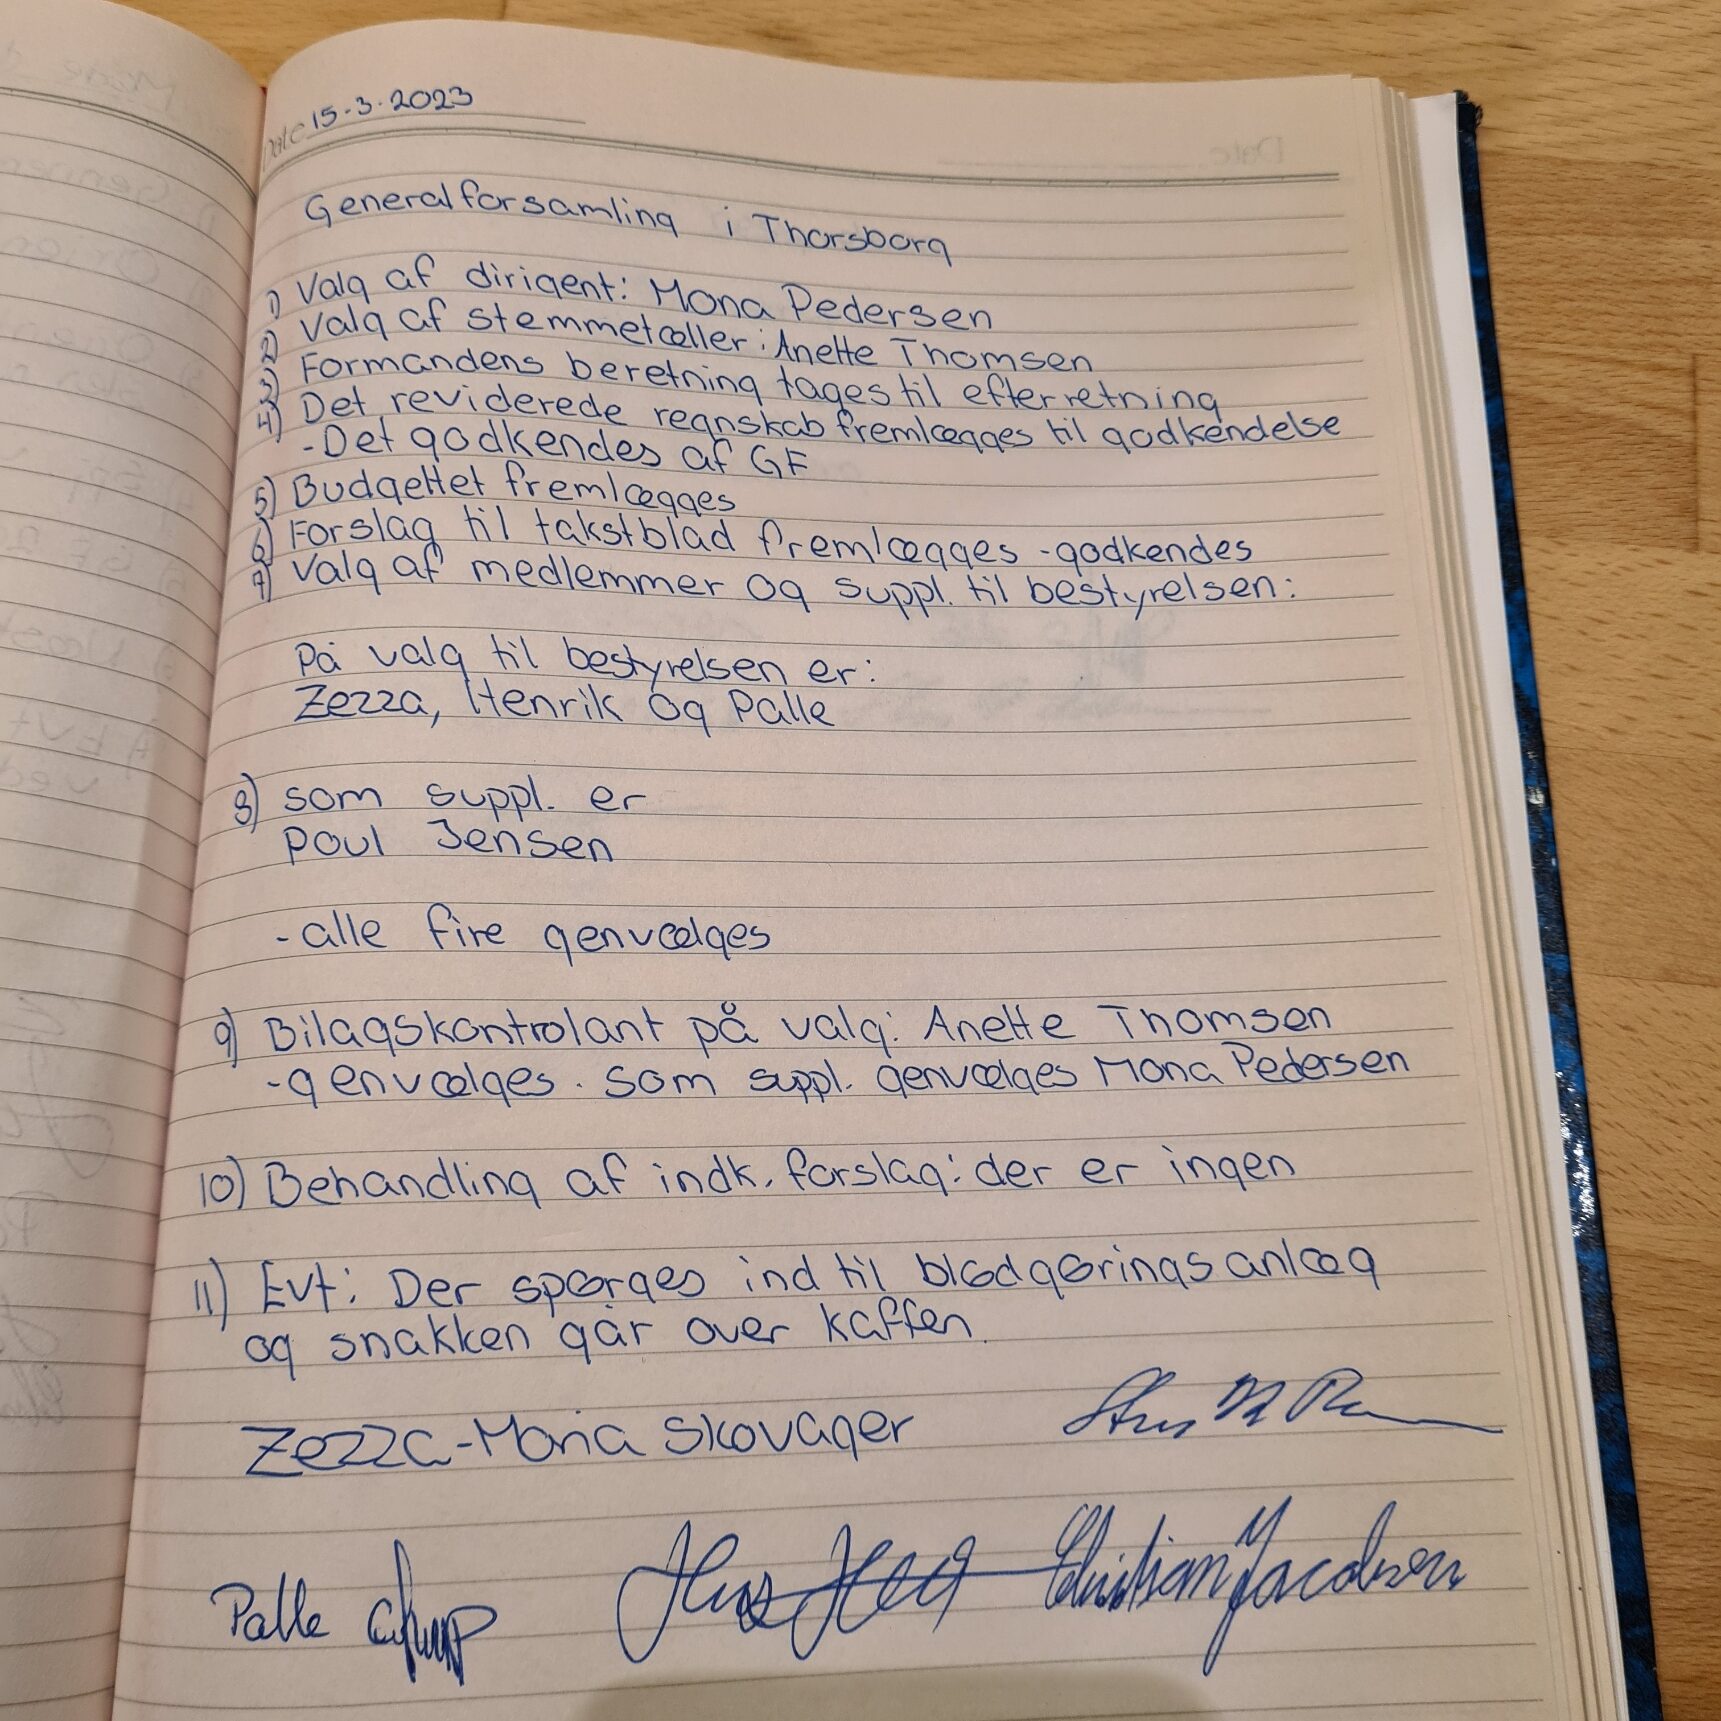 Date 15-3-2023
Generalforsamling i Thorsborg
1) Valg af dirigent: Mona Pedersen
2) Valg af stemmetæller: Anette Thomsen
3) Formandens beretning tages til efterretning
4) Det reviderede regnskab fremlægges til godkendelse
-Det godkendes af GF
5) Budgettet fremlægges
6) Forslag til takstblad fremlægges - godkendes
7) Valg af medlemmer og suppl. til bestyrelsen:
På valg til bestyrelsen er:
Zezza, Henrik og Palle
8) som suppl. er
Poul Jensen
- alle fire genvælges
9) Bilagskontrolant på valg: Anette Thomsen
- genvælges. som suppl. genvælges Mona Pedersen
10) Behandling af indk. forslag: der er ingen
11) Evt: Der spørges ind til blødgøringsanlæg
og snakken går over kaffen.
Zezza-Maria Skovager
Palle
Christian Jacobsen